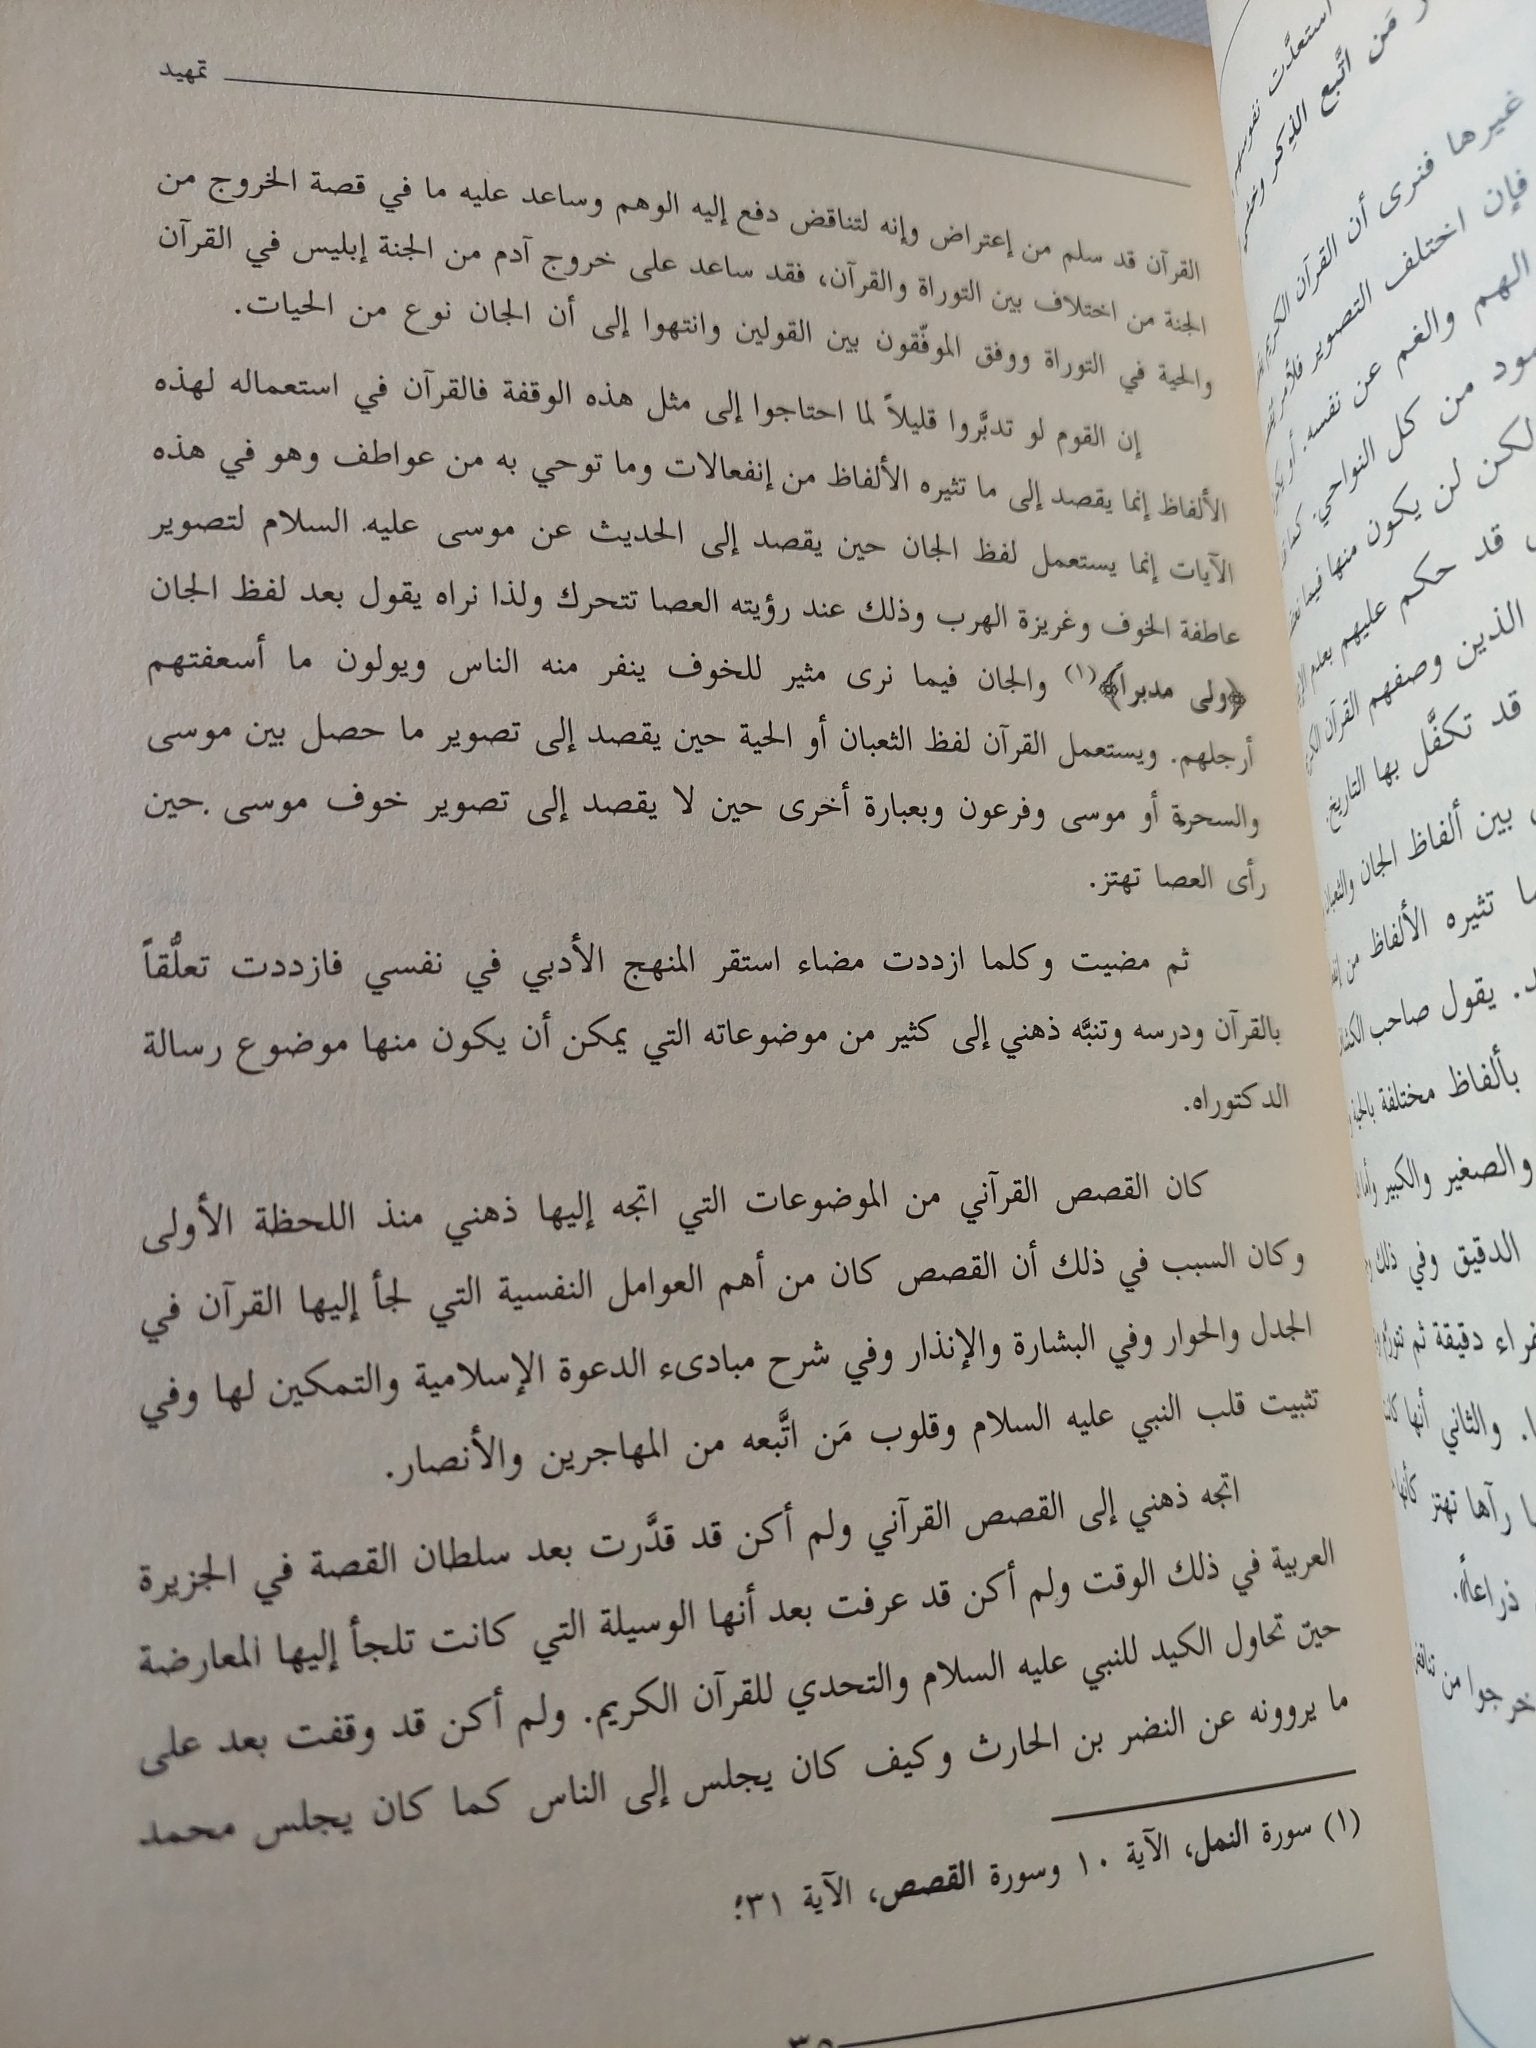 تمهيد
القرآن قد سلم من إعتراض وإنه لتناقض دفع إليه الوهم وساعد عليه ما في قصة الخروج من
الجنة من اختلاف بين التوراة والقرآن، فقد ساعد على خروج آدم من الجنة إبليس في القرآن
والحية في التوراة ووفق الموفّقون بين القولين وانتهوا إلى أن الجان نوع من الحيات.
إن القوم لو تدبَّروا قليلاً لما احتاجوا إلى مثل هذه الوقفة فالقرآن في استعماله لهذه
الألفاظ إنما يقصد إلى ما تثيره الألفاظ من إنفعالات وما توحي به من عواطف وهو في هذه
الآيات إنما يستعمل لفظ الجان حين يقصد إلى الحديث عن موسى عليه السلام لتصوير
عاطفة الخوف وغريزة الهرب وذلك عند رؤيته العصا تتحرك ولذا نراه يقول بعد لفظ الجان
﴿ولى مدبراً﴾(١) والجان فيما نرى مثير للخوف ينفر منه الناس ويولون ما أسعفتهم
أرجلهم. ويستعمل القرآن لفظ الثعبان أو الحية حين يقصد إلى تصوير ما حصل بين موسى
والسحرة أو موسى وفرعون وبعبارة أخرى حين لا يقصد إلى تصوير خوف موسى حين
رأى العصا تهتز.
ثم مضيت وكلما ازددت مضاء استقر المنهج الأدبي في نفسي فازددت تعلُّقاً
بالقرآن ودرسه وتنبَّه ذهني إلى كثير من موضوعاته التي يمكن أن يكون منها موضوع رسالة
الدكتوراه.
كان القصص القرآني من الموضوعات التي اتجه إليها ذهني منذ اللحظة الأولى
وكان السبب في ذلك أن القصص كان من أهم العوامل النفسية التي لجأ إليها القرآن في
الجدل والحوار وفي البشارة والإنذار وفي شرح مبادىء الدعوة الإسلامية والتمكين لها وفي
تثبيت قلب النبي عليه السلام وقلوب مَن اتَّبعه من المهاجرين والأنصار.
اتجه ذهني إلى القصص القرآني ولم أكن قد قدَّرت بعد سلطان القصة في الجزيرة
العربية في ذلك الوقت ولم أكن قد عرفت بعد أنها الوسيلة التي كانت تلجأ إليها المعارضة
حين تحاول الكيد للنبي عليه السلام والتحدي للقرآن الكريم. ولم أكن قد وقفت بعد على
ما يروونه عن النضر بن الحارث وكيف كان يجلس إلى الناس كما كان يجلس محمد
(١) سورة النمل، الآية ١٠ وسورة القصص، الآية ٣١.
٣٥
مَن اتَّبع الذكر
غيرها فنرى أن القرآن الكريم
فإن اختلف التصوير
الهم والغم عن نفسه.
من كل النواحي.
لكن لن يكون منها فيما
قد حكم عليهم بعدم
الذين وصفهم القرآن
قد تكفَّل بها التاريخ.
بين ألفاظ الجان
تثيره الألفاظ من
يقول صاحب
بألفاظ مختلفة
والصغير والكبير
الدقيق وفي ذلك
دقيقة ثم
والثاني أنها
رآها تهتز
ذراعاً.
خرجوا من